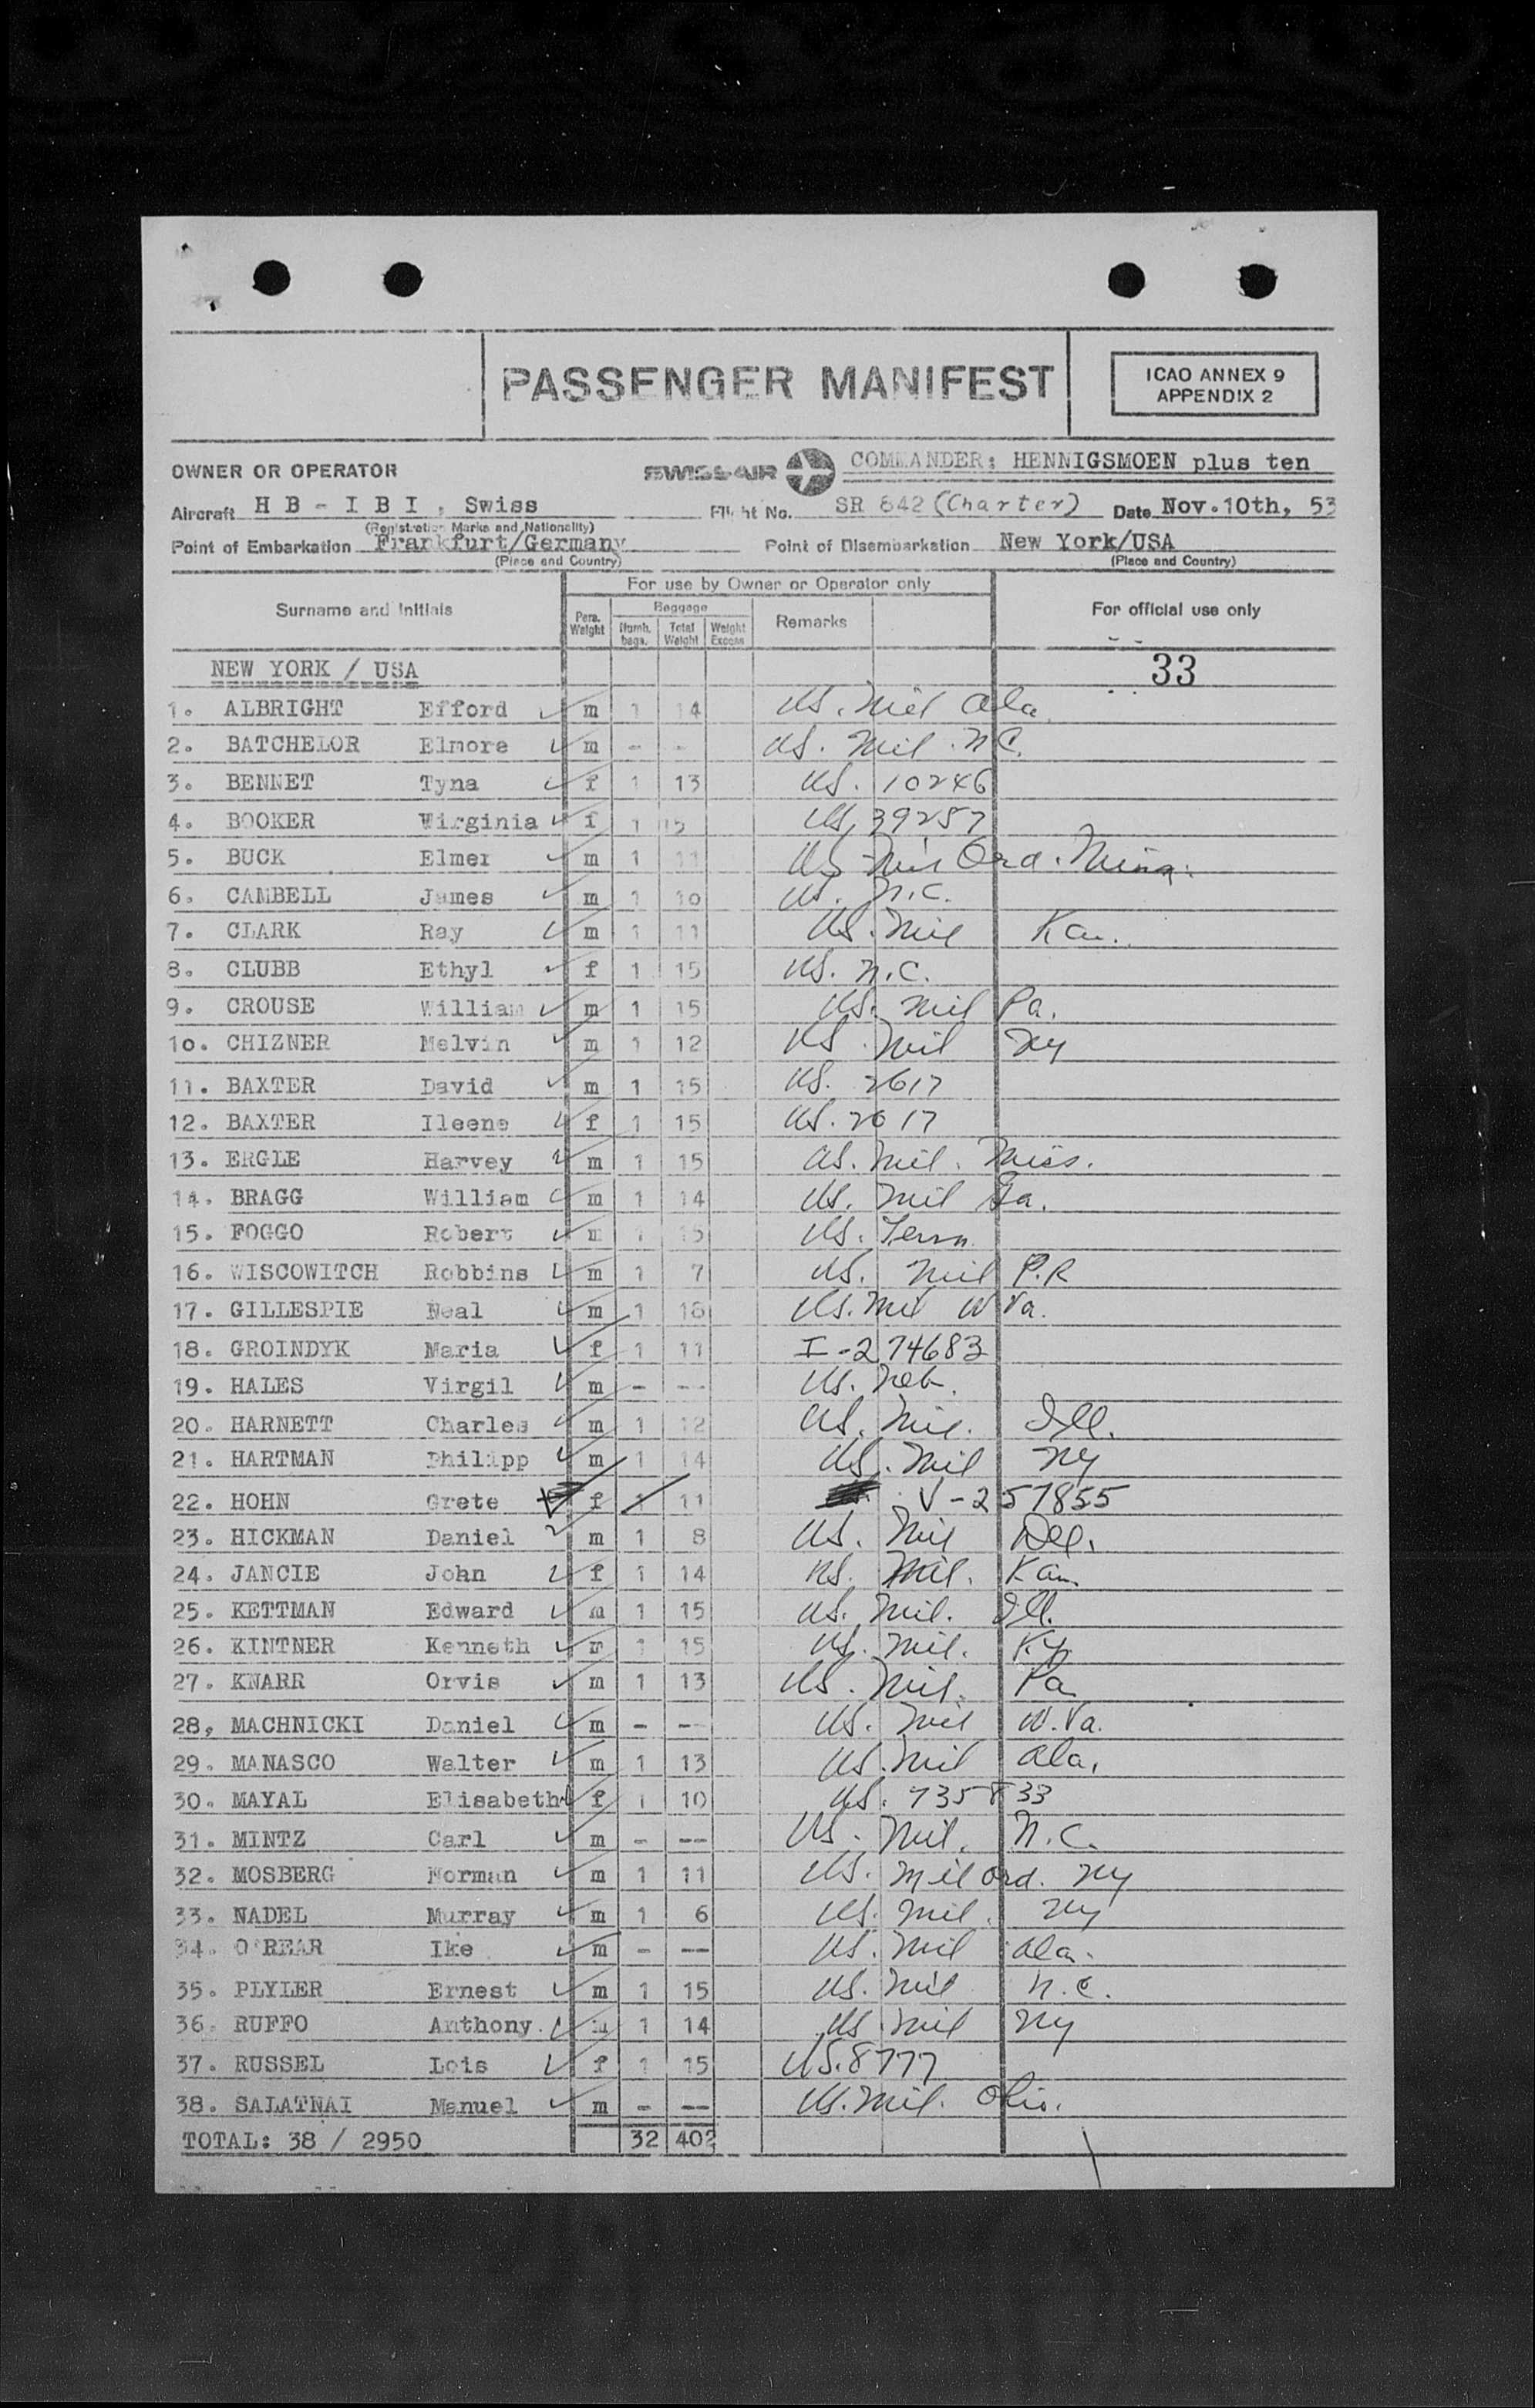 PASSENGER MANIFEST
ICAO ANNEX 9
APPENDIX 2
OWNER OR OPERATOR SWISSAIR COMMANDER: HENNIGSMOEN plus ten
Aircraft H B - I B I , Swiss Flight No. SR 642 (Charter) Date Nov. 10th, 53
(Registration Marks and Nationality)
Point of Embarkation Frankfurt/Germany Point of Disembarkation New York/USA
(Place and Country) (Place and Country)
For use by Owner or Operator only
Surname and Initials Pers. Weight Baggage Numb. bags. Total Weight Weight Excess Remarks For official use only
NEW YORK / USA 33
1. ALBRIGHT Efford m 1 14 US. Mil Ala
2. BATCHELOR Elmore m - - US. Mil. N.C.
3. BENNET Tyna f 1 13 US. 10246
4. BOOKER Wirginia f 1 15 US. 39257
5. BUCK Elmer m 1 11 US Mil Ord. Minn.
6. CAMBELL James m 1 10 US. N.C.
7. CLARK Ray m 1 11 US. Mil Kan.
8. CLUBB Ethyl f 1 15 US. N.C.
9. CROUSE William m 1 15 US. Mil Pa.
10. CHIZNER Melvin m 1 12 US. Mil NY
11. BAXTER David m 1 15 US. 2617
12. BAXTER Ileene f 1 15 US. 2617
13. ERGLE Harvey m 1 15 US. Mil. Miss.
14. BRAGG William m 1 14 US. Mil Ga.
15. FOGGO Robert m 1 15 US. Tenn.
16. WISCOWITCH Robbins m 1 7 US. Mil P.R
17. GILLESPIE Neal m 1 18 US. Mil W Va.
18. GROINDYK Maria f 1 11 I-274683
19. HALES Virgil m - -- US. Neb.
20. HARNETT Charles m 1 12 US. Mil. Ill.
21. HARTMAN Philipp m 1 14 US. Mil NY
22. HOHN Grete f 1 11 V-257855
23. HICKMAN Daniel m 1 8 US. Mil Del.
24. JANCIE John f 1 14 US. Mil. Kan.
25. KETTMAN Edward m 1 15 US. Mil. Ill.
26. KINTNER Kenneth m 1 15 US. Mil. Ky.
27. KNARR Orvis m 1 13 US. Mil. Pa
28, MACHNICKI Daniel m - -- US. Mil W.Va.
29. MANASCO Walter m 1 13 US. Mil Ala.
30. MAYAL Elisabeth f 1 10 US. 735833
31. MINTZ Carl m - -- US. Mil. N.C.
32. MOSBERG Norman m 1 11 US. Mil Ord. NY
33. NADEL Murray m 1 6 US. Mil. NY
34. O'REAR Ike m - -- US. Mil Ala.
35. PLYLER Ernest m 1 15 US. Mil N.C.
36. RUFFO Anthony. m 1 14 US Mil NY
37. RUSSEL Lois f 1 15 US. 8777
38. SALATNAI Manuel m - -- US. Mil. Ohio.
TOTAL: 38 / 2950 32 402